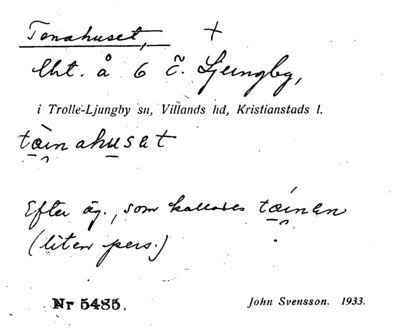 Tenahuset, +
lht. å 6 c̃. Ljungby,
i Trolle-Ljungby sn, Villands hd, Kristianstads l.
täinahuset
Efter äg., som kallades täinen
(liten pers.)
Nr 5485.
John Svensson. 1933.